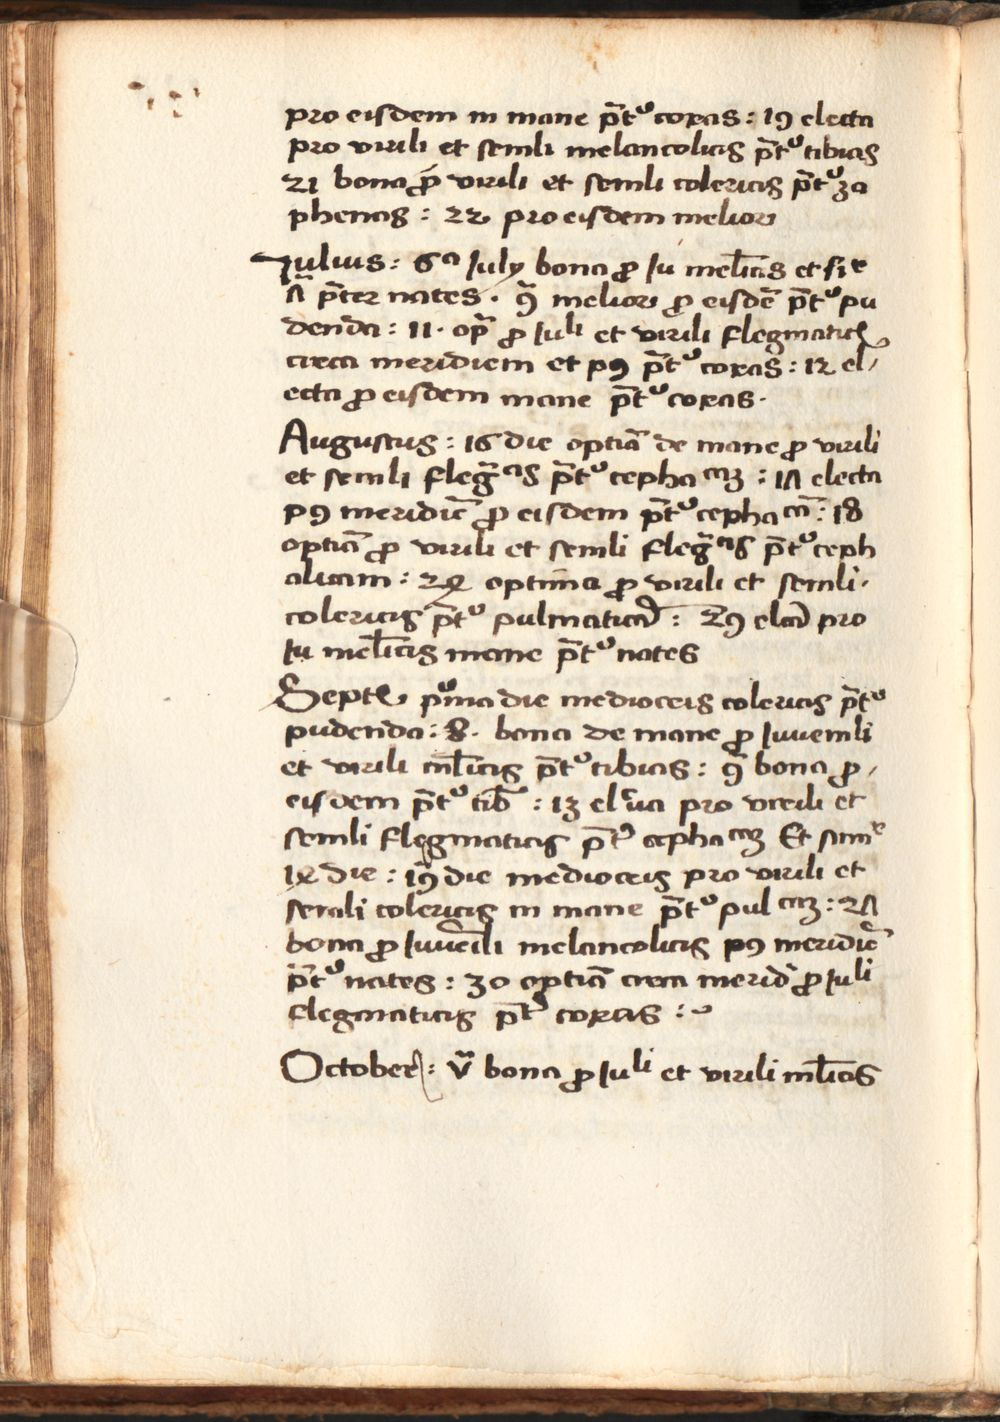 pro eisdem in mane p̄tꝰ coxas : 19 electa
pro virili et senili melancolicis p̄tꝰ tibias
21 bona p̄ virili et senili colericis p̄tꝰ za
phenas : 22 pro eisdem melior
Iulius : 6ᵃ Iuly bona ꝓ Iu mel̄icis et sīe
ʌ̄ p̄ter nates . 9̄ melior ꝓ eisdē p̄tꝰ pu
denda : 11 . op̄ ꝓ Iuˡⁱ et virili flegmatic
circa meridiem et p9 p̄tꝰ coxas : 12 el/
ecta ꝓ eisdem mane p̄tꝰ coxas .
Augustus : 16 die optiā de mane ꝓ virili
et senili fleḡᶜⁱˢ p̄tꝰ cephaᶜᵃᵐ : 1ʌ electa
p9 meridiē ꝓ eisdem p̄tꝰ cephaᶜᵃ̄ : 18
optiā ꝓ virili et senili fleḡᶜⁱˢ p̄tꝰ ceph
alicam : 2ꝝ optima ꝓ virili et senili .
colericis p̄tꝰ pulmaticā : 29 elcā pro
Iu mel̄icis mane p̄tꝰ nates
Septē pͥma die mediocris colericis p̄tꝰ
pudenda : 8 . bona de mane ꝓ Iuvenili
et virili ml̄icis p̄tꝰ tibias : 9̄ bona ꝓ /
eisdem p̄tꝰ tib̄ : 13 elcͣ pro virili et
senili flegmaticis p̄tꝰ cephaᶜᵃᵐ Et simͤ
1ꝝ die : 19̄ die mediocris pro virili et
senili colericis in mane p̄tꝰ pulᶜᵃᵐ : 2ʌ
bona ꝓ Iuvēili melancolicis p9 meridiē
p̄tꝰ nates : 30 optiā circa merid̄ ꝓ Iuˡⁱ
flegmaticis p̄tꝰ coxas :
October : v̄ bona ꝓ Iuˡⁱ et virili ml̄icis